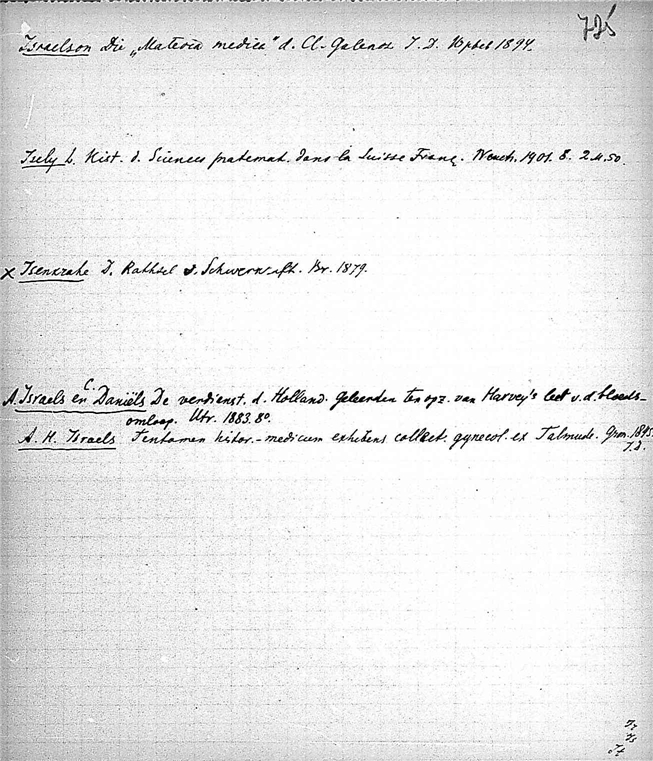 725
Israelson Die „Materia medica" d. Cl. Galenos I. D. 1894.
Isely L. Hist. d. Sciences mathemat. dans la Suisse Franç. Neuch. 1901. 8. 2 M. 50.
x Isenkrahe D. Räthsel v. Schwerkraft. Br. 1879.
A. Israels en C. Daniëls De verdienst. d. Holland. geleerden ten opz. van Harvey's leer v. d. bloeds-
omloop. Utr. 1883. 8º.
A. H. Israels Tentamen histor.-medicum exhibens collect. gynecol. ex Talmude. Gron. 1845.
I. D.
Ir
Is
It